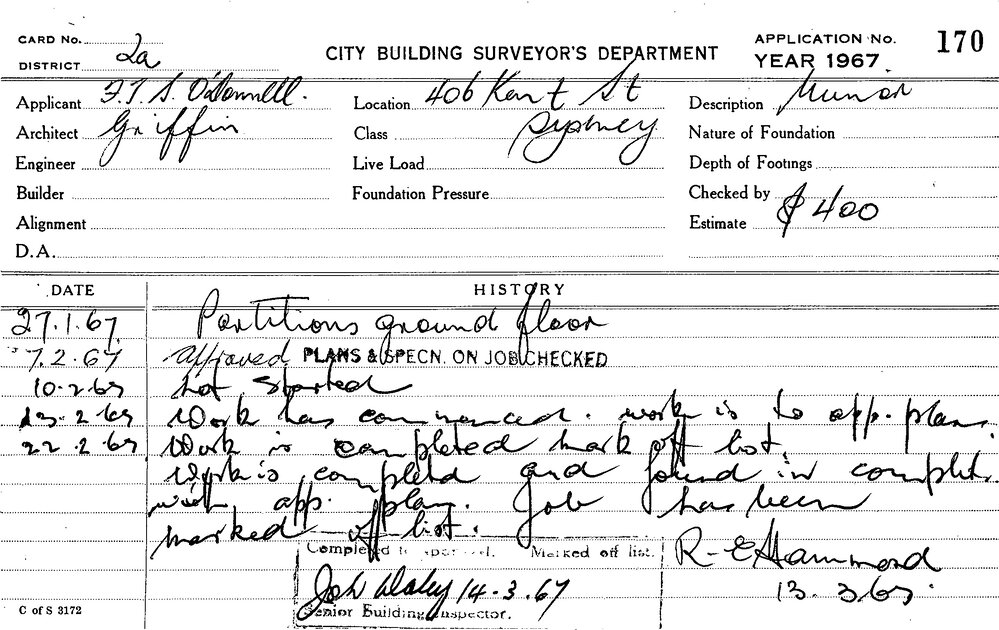 CARD No.
DISTRICT 2a
CITY BUILDING SURVEYOR'S DEPARTMENT
APPLICATION No. 170
YEAR 1967
Applicant F.T.S. O'Donnell.
Location 406 Kent St
Description Minor
Architect Griffin
Class Sydney
Nature of Foundation
Engineer
Live Load
Depth of Footings
Builder
Foundation Pressure
Checked by
Alignment
Estimate $400
D.A.
DATE HISTORY
27.1.67 Partitions ground floor
7.2.67 approved PLANS & SPECN. ON JOB CHECKED
10.2.67 Not Started
13.2.67 Work has commenced. work is to app. plans.
22.2.67 Work is completed mark off list.
Work is completed and found in complet.
with app. plan. Job has been
marked off list.
Completed to approval. Marked off list.
R-E Hammond
13.3.67.
John Daley 14.3.67
Senior Building Inspector.
C of S 3172